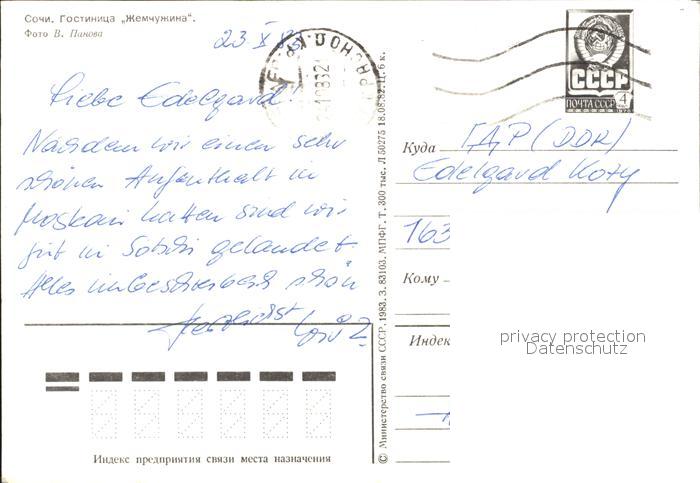 Сочи. Гостиница „Жемчужина".
Фото В. Панова
23 X 83
Liebe Edelgard!
Nachdem wir einen sehr
schönen Aufenthalt in
Moskau hatten sind wir
gut in Sotschi gelandet.
Alles unbeschreiblich schön
Herzlichst
Индекс предприятия связи места назначения
© Министерство связи СССР, 1983, З. 83103, МПФГ, Т. 300 тыс. Л 50275 18.08.82. Ц. 6 к.
СССР
ПОЧТА СССР 4
Куда ГДР (DDR)
Edelgard
163
Кому
Индек
privacy protection
Datenschutz